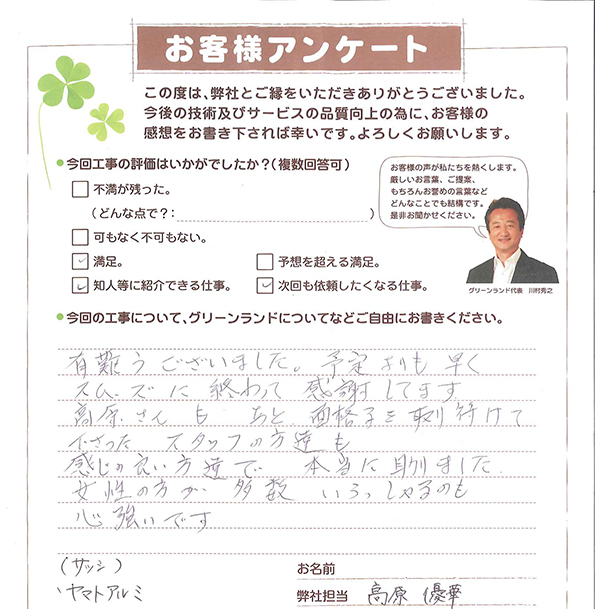 お客様アンケート
この度は、弊社とご縁をいただきありがとうございました。
今後の技術及びサービスの品質向上の為に、お客様の
感想をお書き下されば幸いです。よろしくお願いします。
●今回工事の評価はいかがでしたか？（複数回答可）
不満が残った。
（どんな点で？：　）
可もなく不可もない。
満足。
予想を超える満足。
知人等に紹介できる仕事。
次回も依頼したくなる仕事。
お客様の声が私たちを熱くします。
厳しいお言葉、ご提案、
もちろんお誉めの言葉など
どんなことでも結構です。
是非お聞かせください。
グリーンランド代表　川村秀之
●今回の工事について、グリーンランドについてなどご自由にお書きください。
有難うございました。予定よりも早く
スムーズに終わって感謝してます
高原さんも　あと面格子を取り付けて
下さった　スタッフの方達も
感じの良い方達で　本当に助りました.
女性の方が多数いらっしゃるのも
心強いです
（サッシ）
ヤマトアルミ
お名前
弊社担当　高原　優華